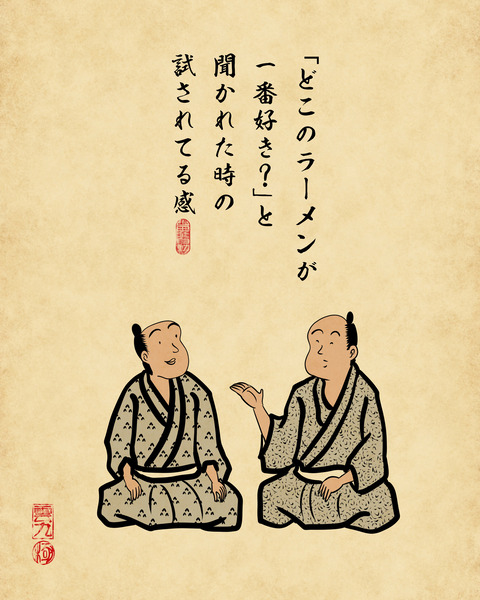 「どこのラーメンが
一番好き？」と
聞かれた時の
試されてる感